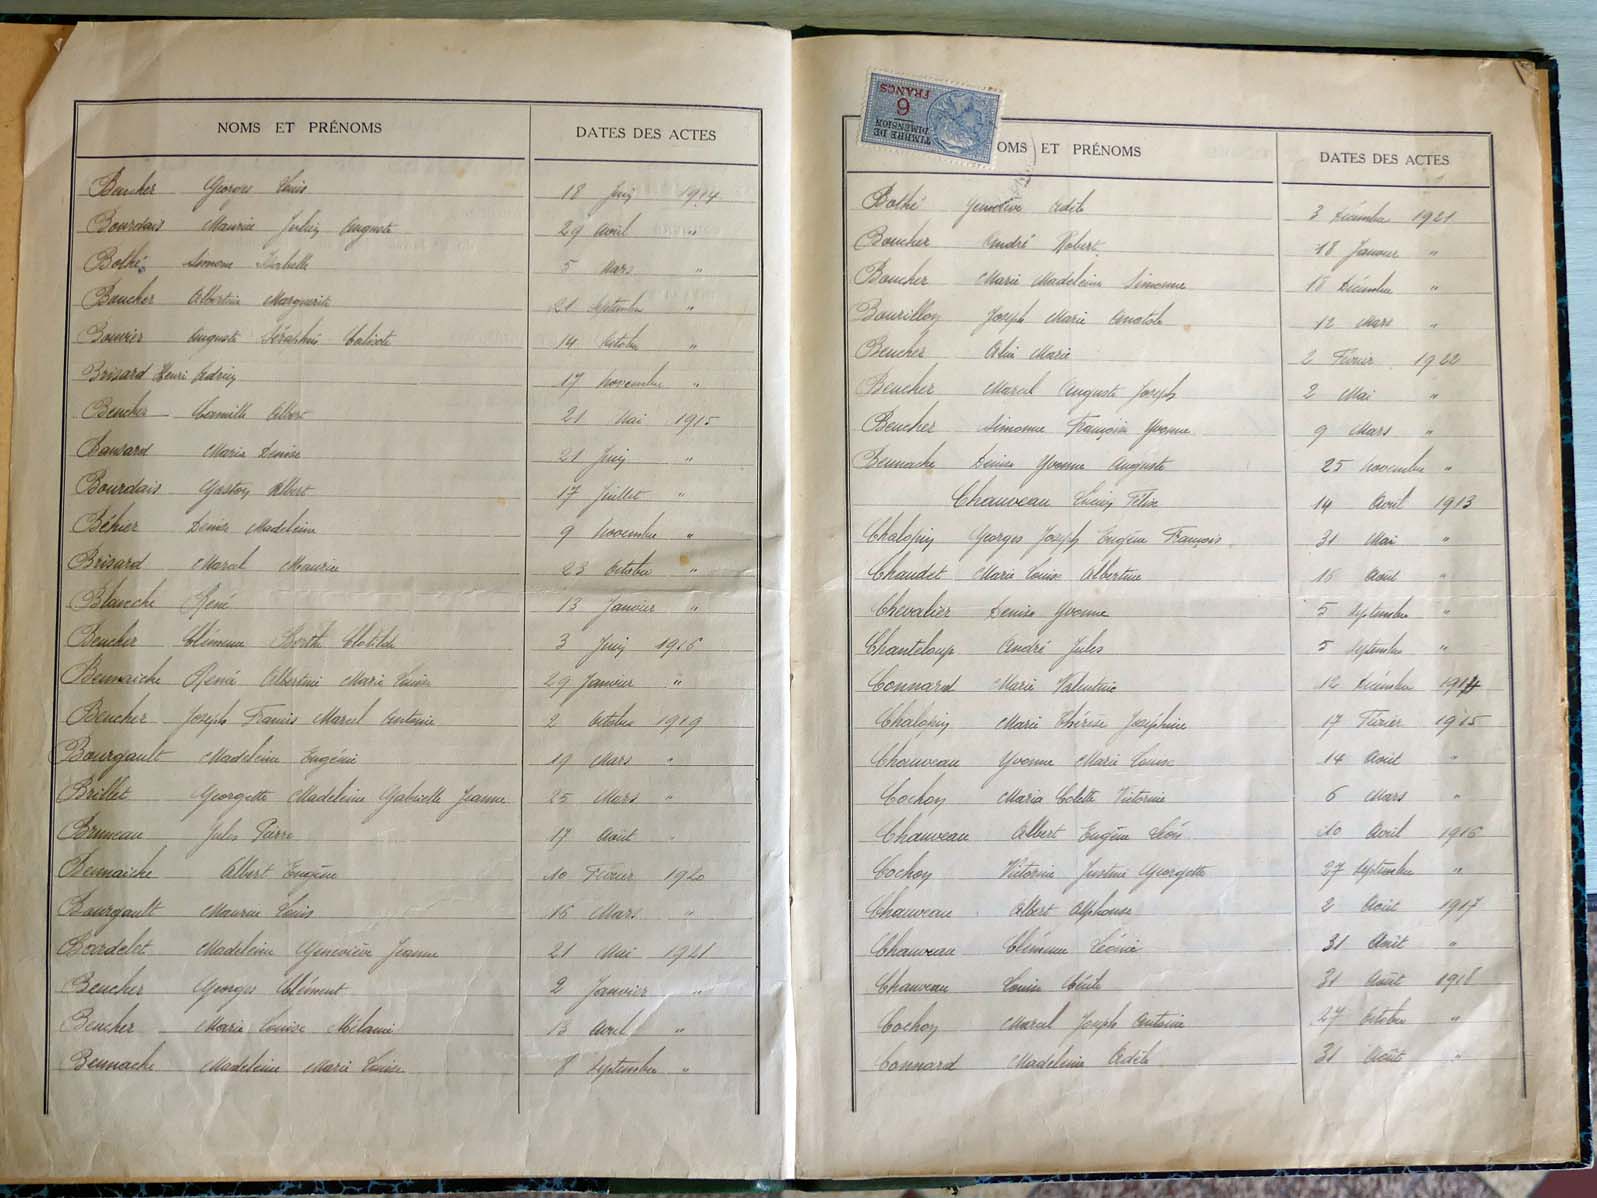 NOMS ET PRÉNOMS DATES DES ACTES
Beucher Georges Louis 18 Juin 1914
Bourdais Maurice Julien Auguste 29 Avril "
Bothé Simone Isabelle 5 Mars "
Boucher Albertine Marguerite 21 Septembre "
Bouvier Auguste Séraphin Calixte 14 Octobre "
Brisard Henri Adrien 17 Novembre "
Beucher Camille Albert 21 Mai 1915
Marie Denise 21 Juin "
Bourdais Gaston Albert 17 Juillet "
Béhier Denise Madeleine 9 Novembre "
Brisard Marcel Maurice 23 Octobre "
Blaveche René 13 Janvier "
Beucher Clémence Berthe Clotilde 3 Juin 1916
Bennaiche René Albertine Marie Louise 29 Janvier "
Beucher Joseph Francis Marcel Antoine 2 Octobre 1919
Bourgault Madeleine Eugénie 19 Mars "
Brillet Georgette Madeleine Gabrielle Jeanne 25 Mars "
Bruneau Jules Pierre 17 Août "
Bennaiche Albert Eugène 10 Février 1920
Bourgault Maurice Louis 16 Mars "
Bordelet Madeleine Geneviève Jeanne 21 Mai 1921
Beucher Georges Clément 2 Janvier "
Beucher Marie Louise Mélanie 13 Avril "
Bennache Madeleine Marie Louise 8 Septembre "
TIMBRE DE DIMENSION
6
FRANCS
OMS ET PRÉNOMS DATES DES ACTES
Bothé Geneviève Adèle 3 Décembre 1921
Boucher André Robert 18 Janvier "
Boucher Marie Madeleine Simonne 18 Décembre "
Bourillon Joseph Marie Anatole 12 Mars "
Beucher Marie 2 Février 1922
Beucher Marcel Auguste Joseph 2 Mai "
Beucher Simonne Françoise Yvonne 9 Mars "
Bennache Denise Yvonne Auguste 25 Novembre "
Chauveau Lucien Félix 14 Avril 1913
Chalopin Georges Joseph Eugène François 31 Mai "
Chaudet Marie Louise Albertine 16 Août "
Chevalier Denise Yvonne 5 Septembre "
Chanteloup André Jules 5 Septembre "
Connard Marie Valentine 12 Décembre 1914
Chalopin Marie Thérèse Joséphine 17 Février 1915
Chauveau Yvonne Marie Louise 14 Août "
Cochon Maria Colette Victorine 6 Mars "
Chauveau Albert Eugène Léon 10 Avril 1916
Cochon Victorine Justine Georgette 27 Septembre "
Chauveau Albert Alphonse 2 Août 1917
Chauveau Clémence Léonie 31 Août "
Chauveau Louise Cécile 31 Août 1918
Cochon Marcel Joseph Antoine 27 Octobre "
Connard Madeleine Adèle 31 Août "